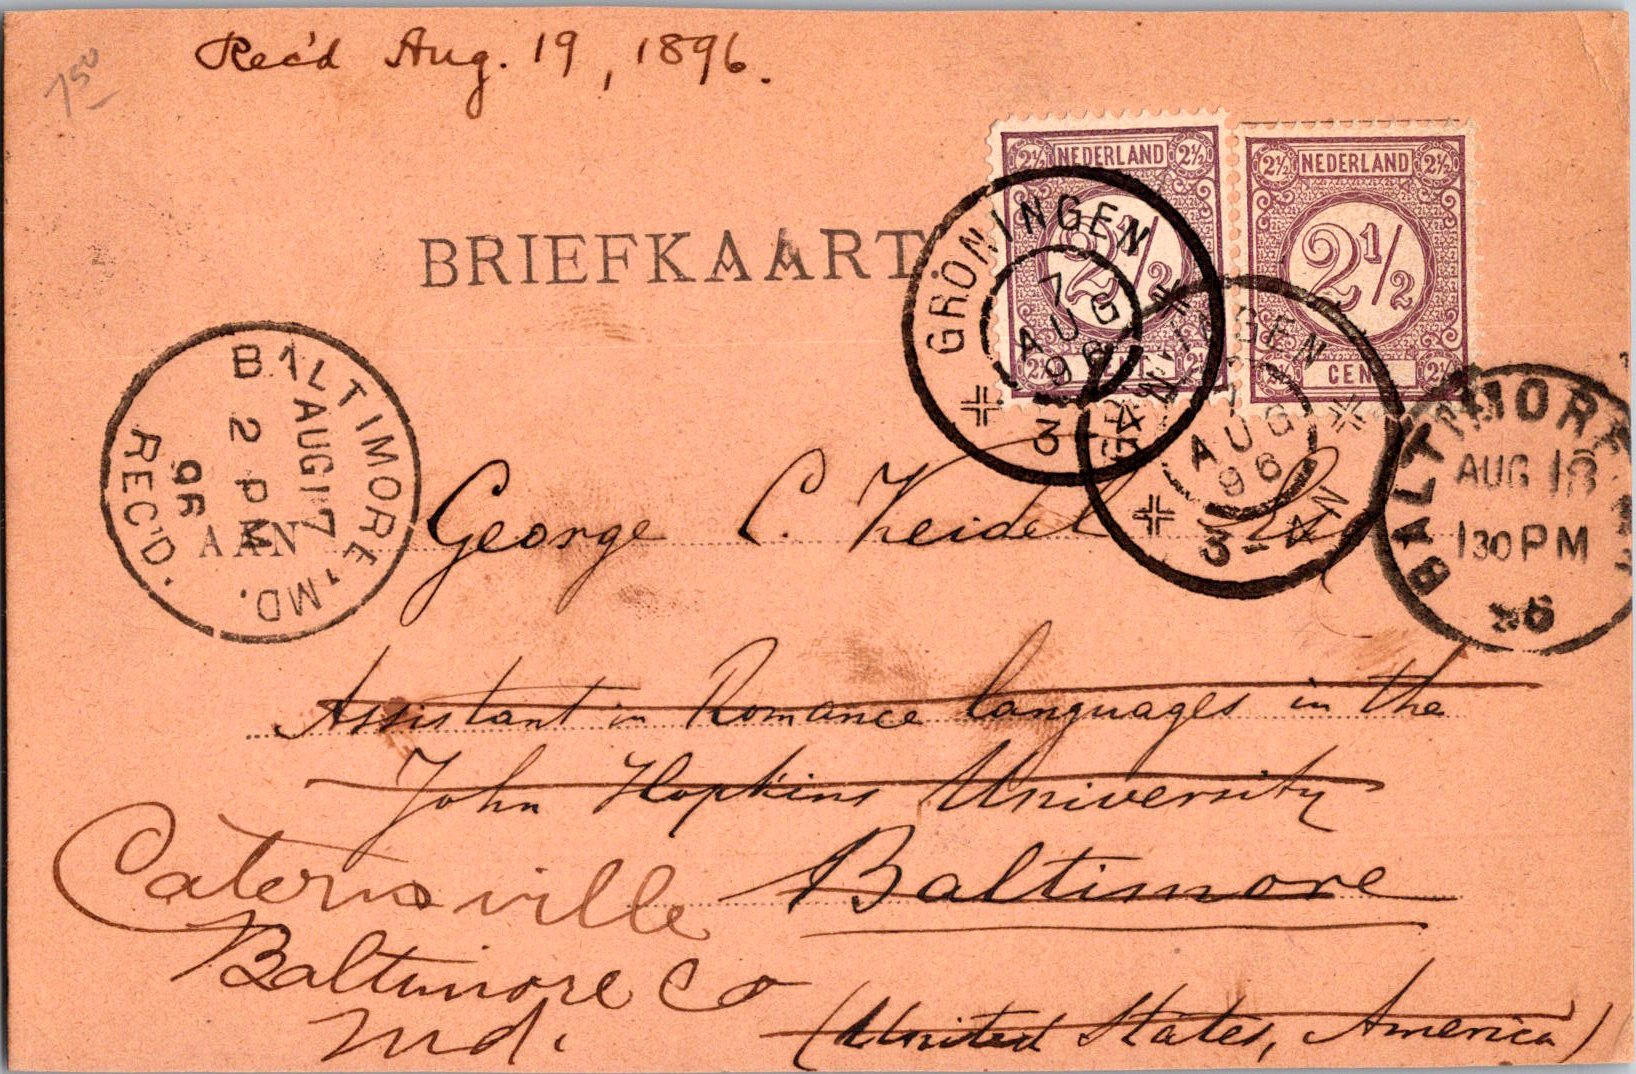 Rec'd Aug. 19, 1896.
7 50
2½ NEDERLAND 2½
2½ NEDERLAND 2½
2½
2½
CENT
CENT
BRIEFKAART
GRONINGEN
7 AUG 96
3-4N
AUG 96
3-4N
BALTIMORE, MD.
AUG 17
2 PM
96
REC'D.
BALTIMORE
AUG 18
130 PM
96
AAN
George C. Keidel
Assistant in Romance languages in the
John Hopkins University
Baltimore
Catonsville
Baltimore Co
Md.
(United States, America)